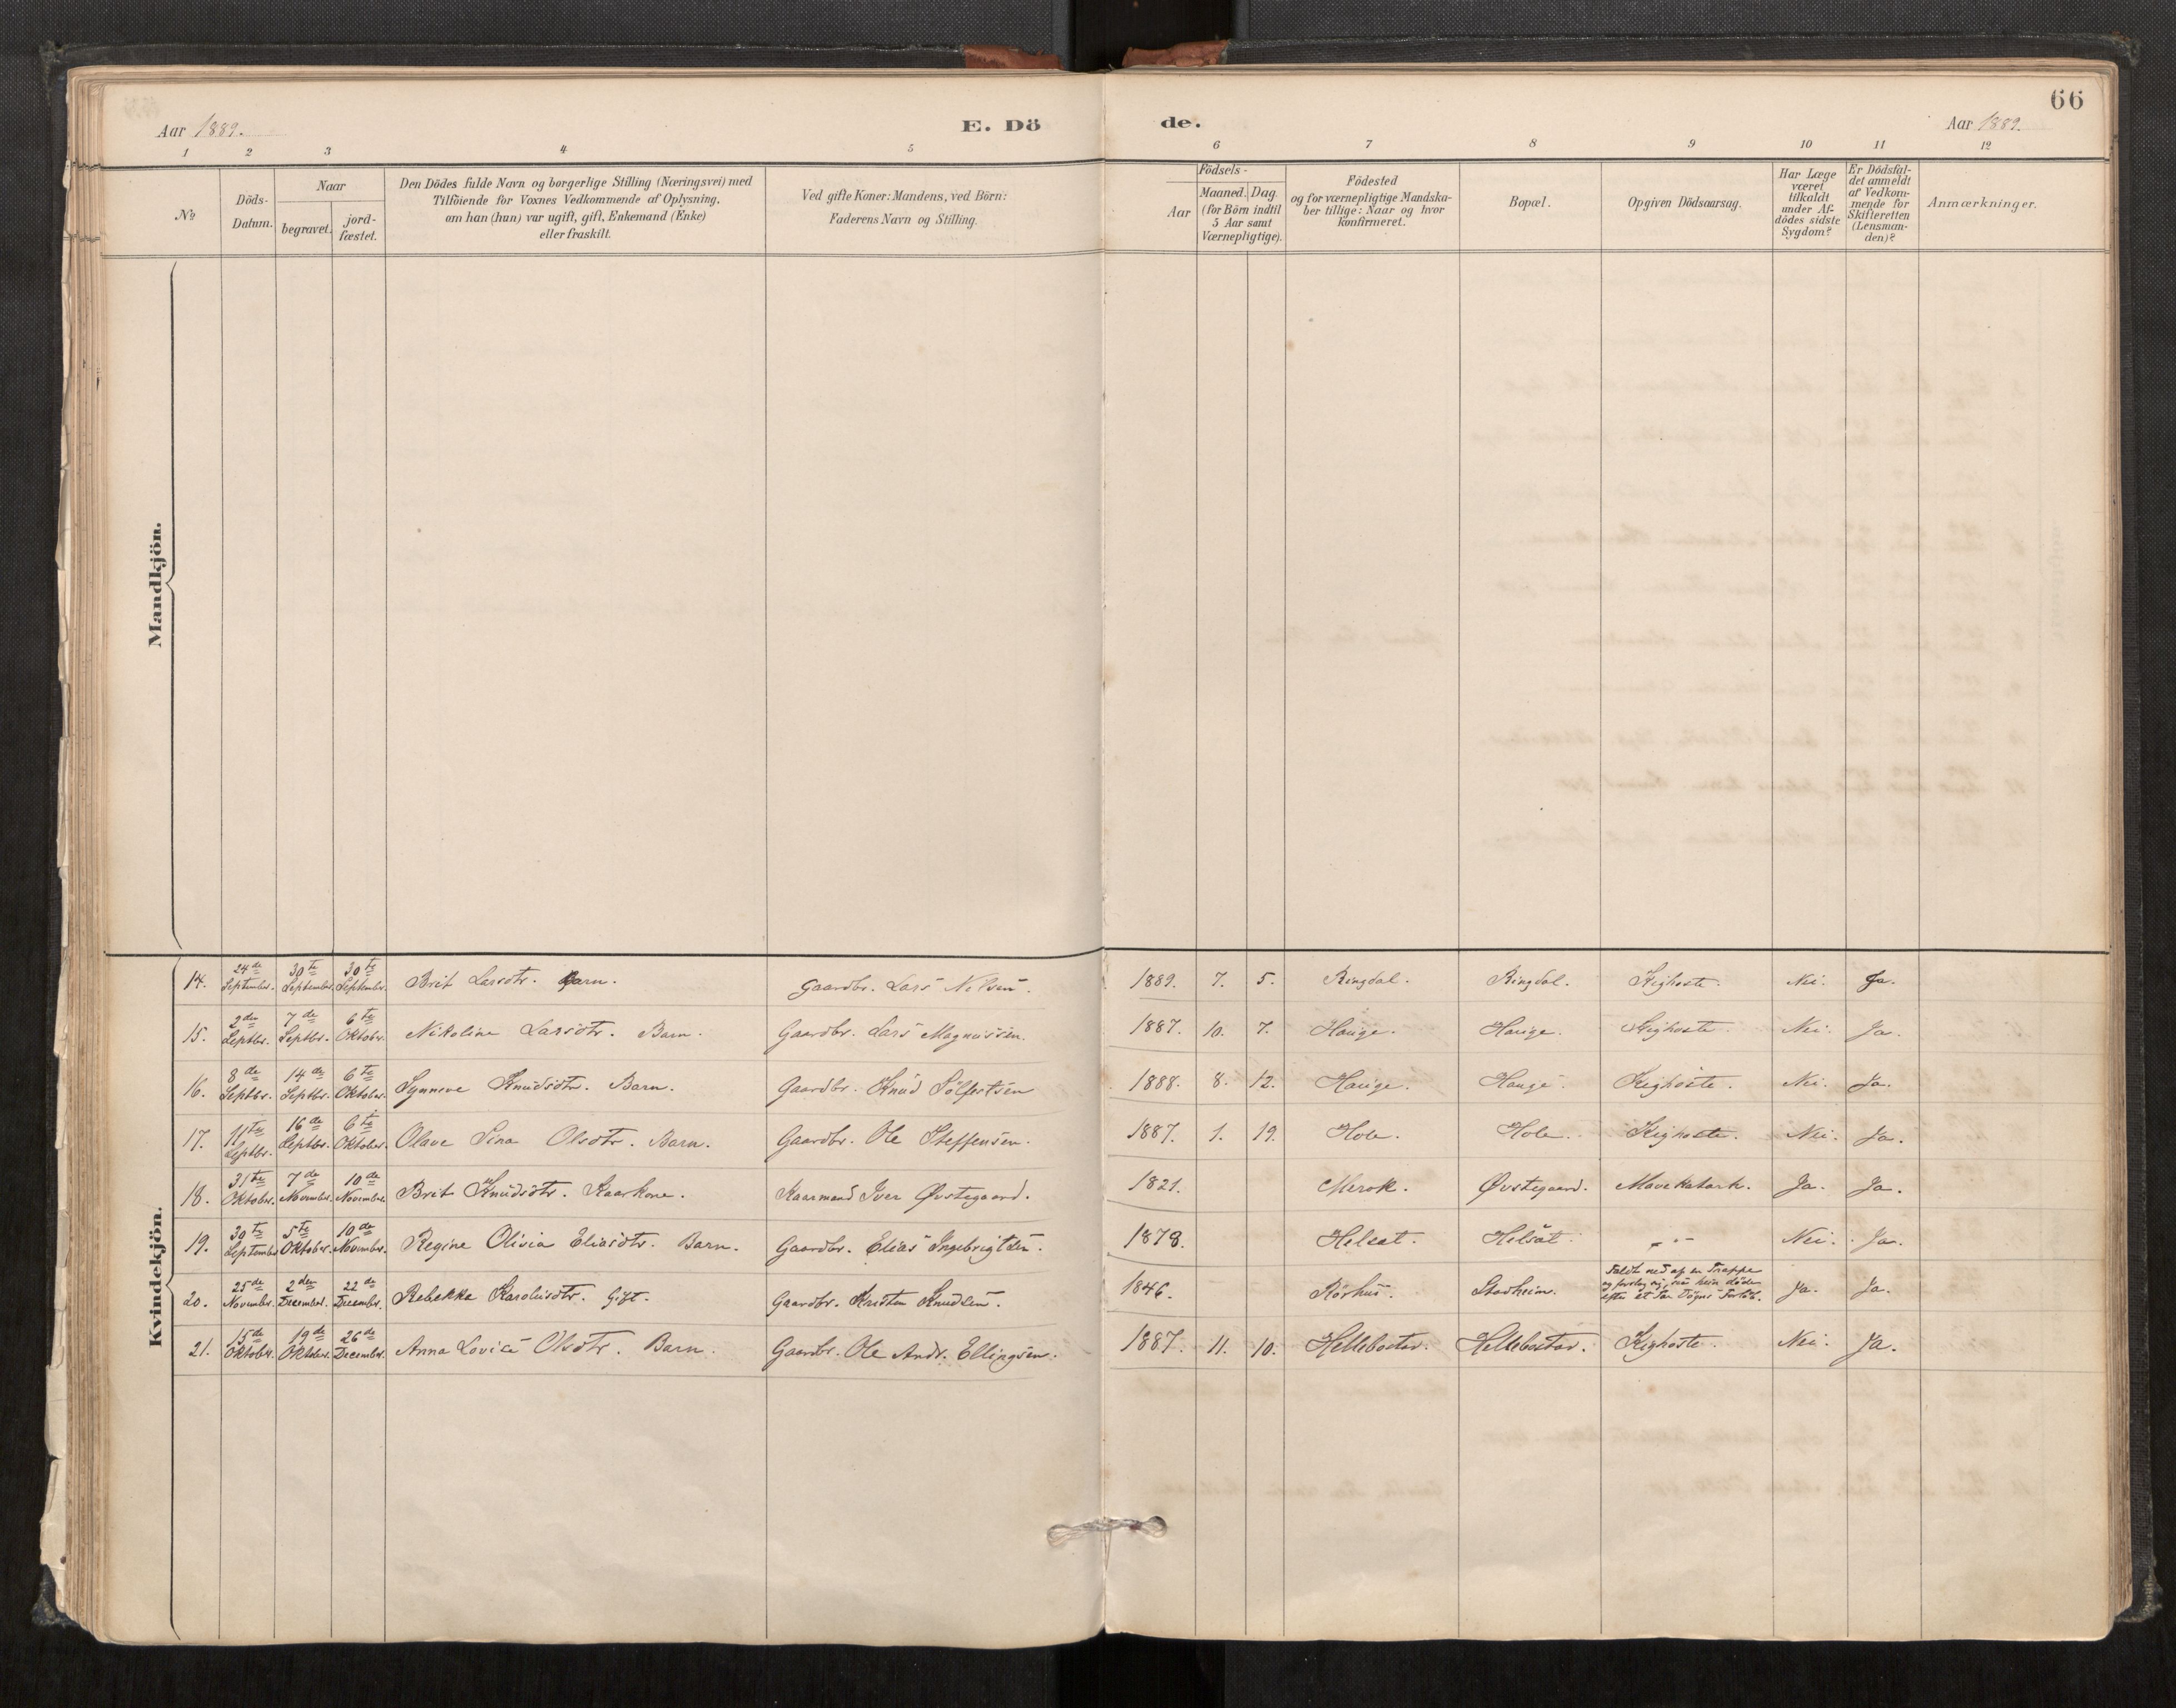 66
Aar 1889.
E. Dö de.
Aar 1889.
1 2 3 4 5 6 7 8 9 10 11 12
№
Döds-
Datum.
Naar
begravet.
jord-
fæstet.
Den Dödes fulde Navn og borgerlige Stilling (Næringsvei) med
Tilföiende for Voxnes Vedkommende af Oplysning,
om han (hun) var ugift, gift, Enkemand (Enke)
eller fraskilt.
Ved gifte Koner: Mandens, ved Börn:
Faderens Navn og Stilling.
Födsels-
Aar
Maaned. Dag.
(for Börn indtil
5 Aar samt
Værnepligtige).
Födested
og for værnepligtige Mandska-
ber tillige: Naar og hvor
konfirmeret.
Bopæl.
Opgiven Dödsaarsag.
Har Læge
været
tilkaldt
under Af-
dödes sidste
Sygdom?
Er Dödsfal-
det anmeldt
af Vedkom-
mende for
Skifteretten
(Lensman-
den)?
Anmærkninger.
Mandkjön.
Kvindekjön.
14. 24de September. 30te September. 30te September. Brit Larsdtr. Barn. Gaardbr. Lars Nilsen. 1889. 7. 5. Ringdal. Ringdal. Kighoste. Nei. Ja.
15. 2den Septbr. 7de Septbr. 6te Oktober. Nikoline Larsdtr. Barn. Gaardbr. Lars Magnussen. 1887. 10. 7. Hauge. Hauge. Kighoste. Nei. Ja.
16. 8de Septbr. 14de Septbr. 6te Oktober. Synneve Knudsdtr. Barn. Gaardbr. Knud Sölfestsen 1888. 8. 12. Hauge. Hauge. Kighoste. Nei. Ja.
17. 11te Septbr. 16de Septbr. 6te Oktober. Olave Sina Olsdtr. Barn. Gaardbr. Ole Steffensen. 1887. 1. 19. Hole. Hole. Kighoste. Nei. Ja.
18. 31te Oktober. 7de November. 10de November. Brit Knudsdtr. Kaarkone. Kaarmand Iver Øvstegaard. 1821. Merok. Øvstegaard. Mavekatarh. Ja. Ja.
19. 30te September 5te Oktober. 10de November. Regine Olivia Eliasdtr. Barn. Gaardbr. Elias Ingebrigtsen. 1878. Helset. Helsät. „ - Nei. Ja.
20. 25de November. 2den December. 22de December. Rebekka Karolusdtr. Gift. Gaardbr. Kristen Knudsen. 1846. Rörhus. Stavheim. Faldt ned af en Trappe
og forslog sig, som hun döde
efter et Par Dögns Forlöb. Ja. Ja.
21. 15de Oktober. 19de Oktober. 26de December. Anna Lovise Olsdtr. Barn. Gaardbr. Ole Andr. Ellingsen. 1887. 11. 10. Hellebostad. Hellebostad. Kighoste. Nei. Ja.